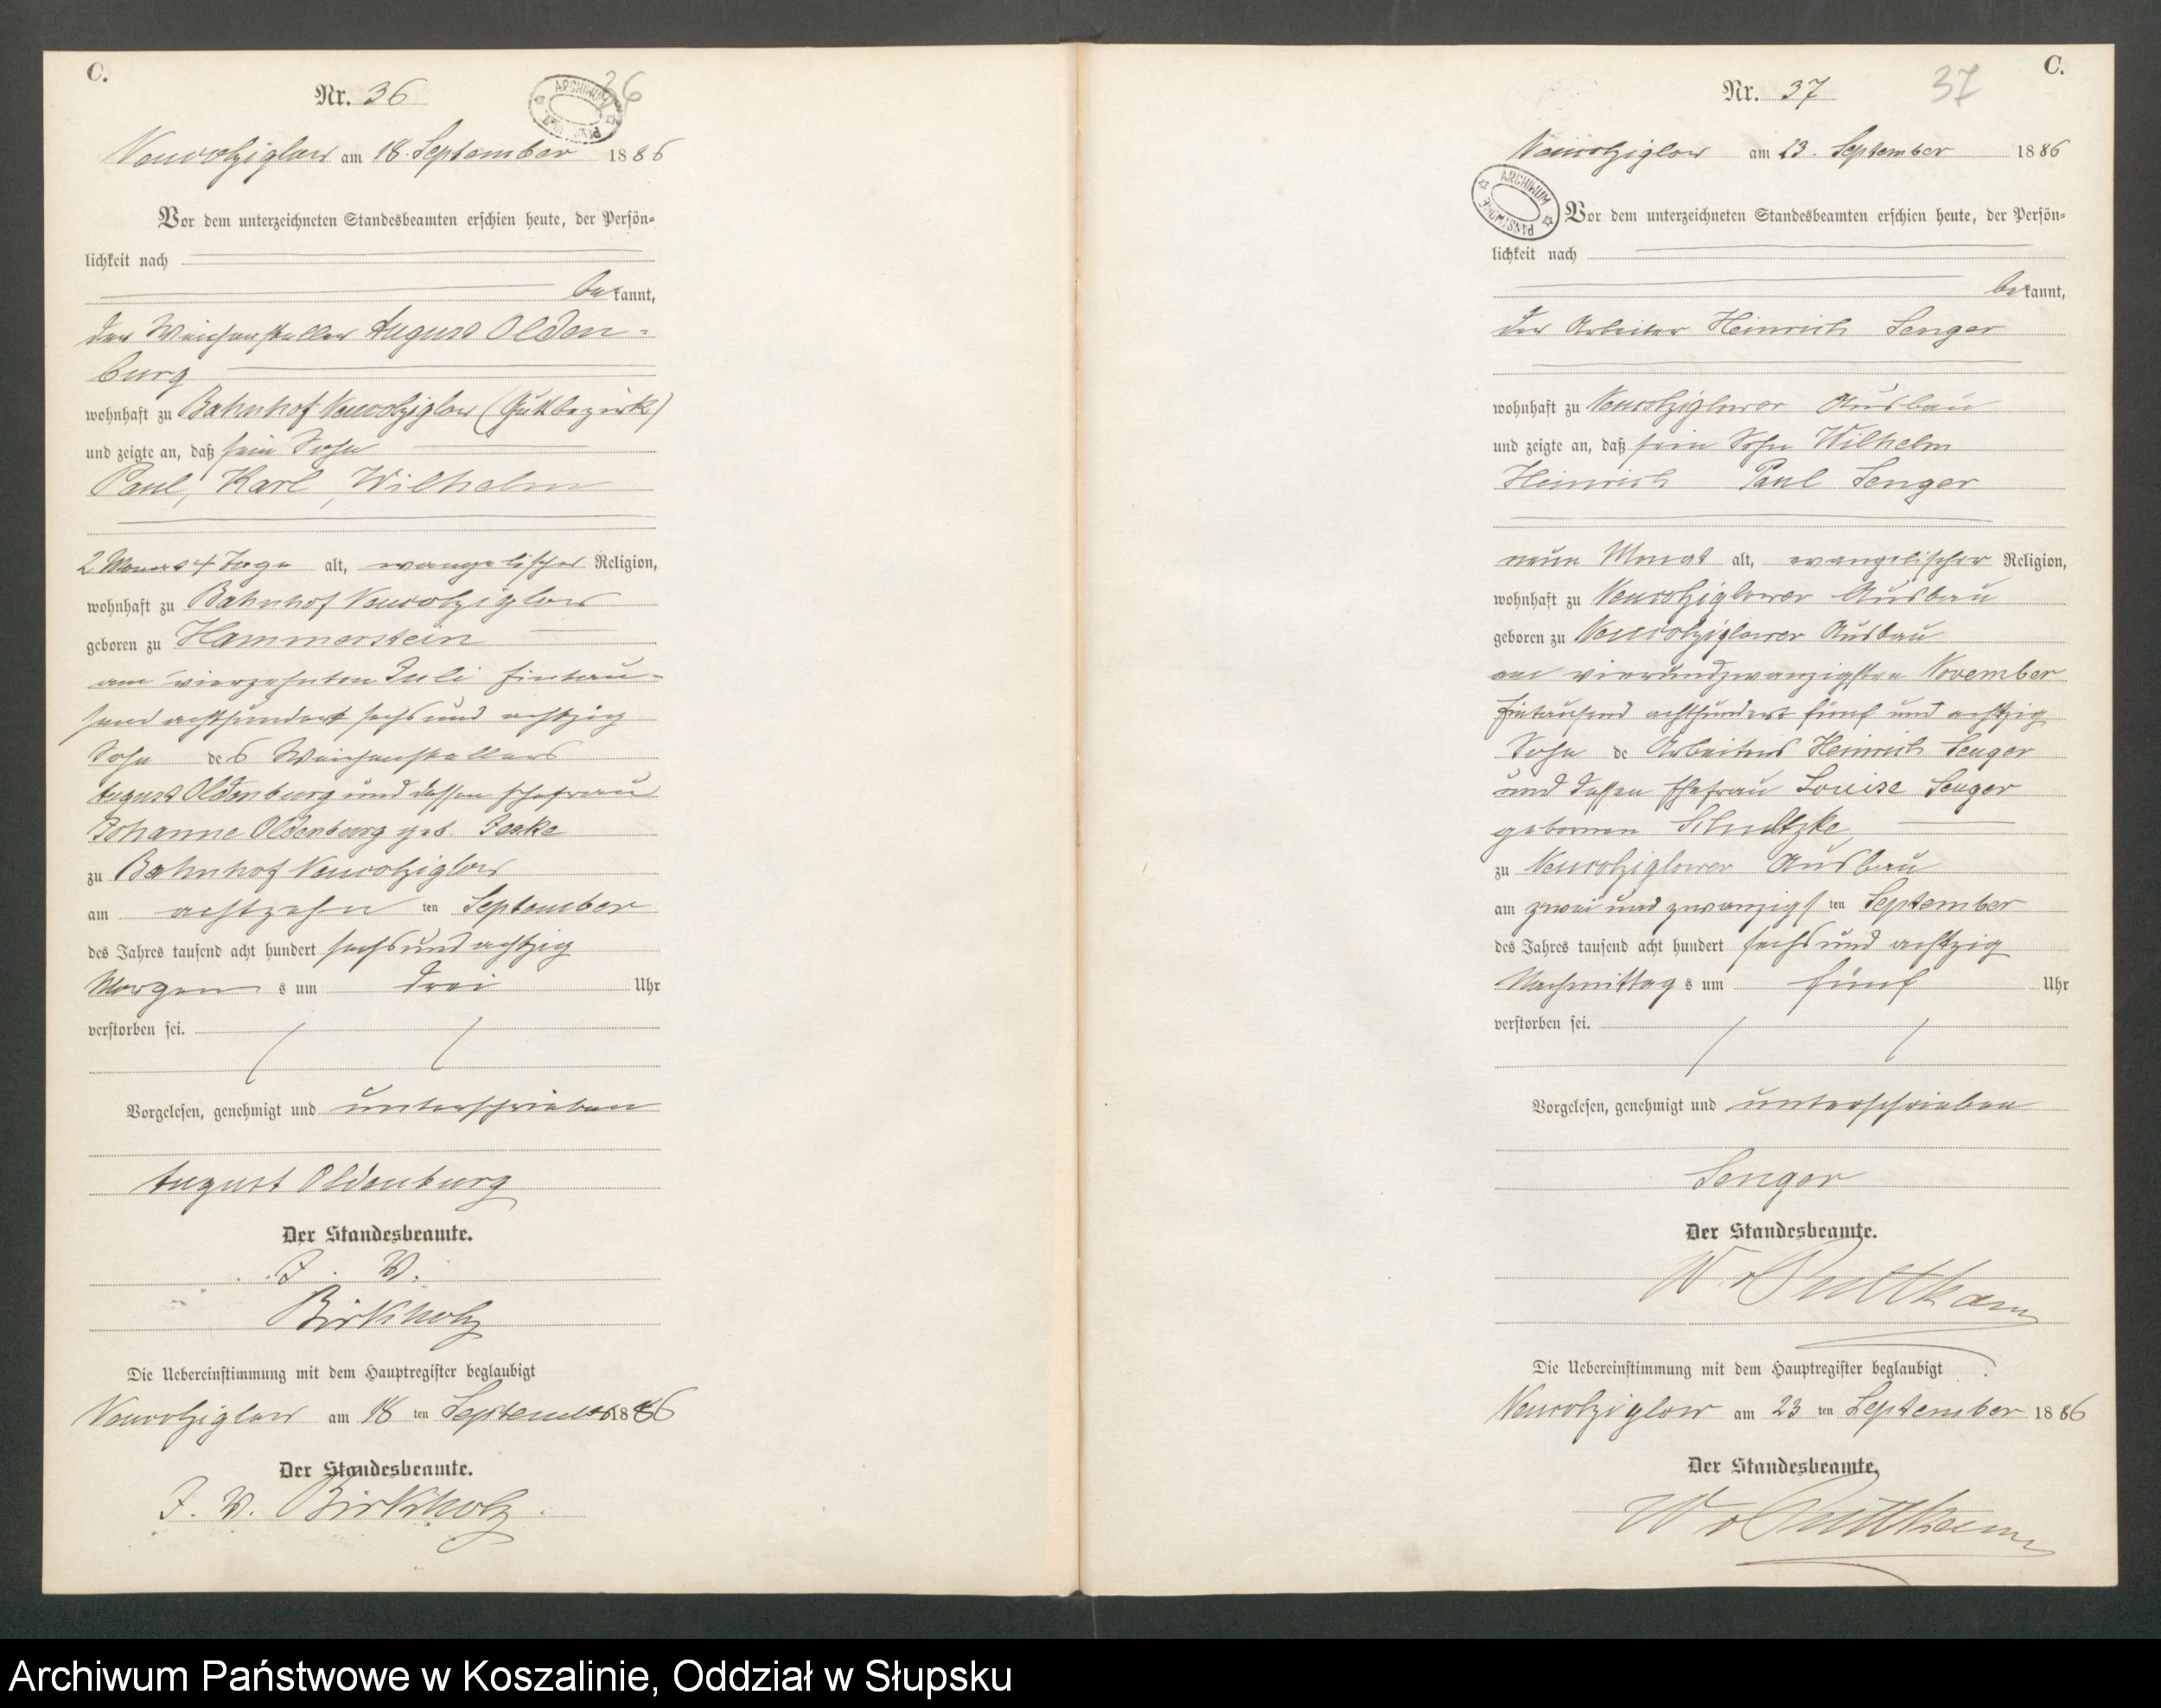 C.
Nr. 36
36
ARCHIWUM
Neukolziglow am 18. September 1886
Vor dem unterzeichneten Standesbeamten erschien heute, der Persön-
lichkeit nach
bekannt,
der Weichensteller August Olden-
burg
wohnhaft zu Bahnhof Neukolziglow (Gutsbezirk)
und zeigte an, daß sein Sohn
Paul, Karl, Wilhelm
2 Monat 4 Tage alt, evangelischer Religion,
wohnhaft zu Bahnhof Neukolziglow
geboren zu Hammerstein
am vierzehnten Juli Eintau-
send achthundert sechs und achtzig
Sohn des Weichenstellers
August Oldenburg und dessen Ehefrau
Johanne Oldenburg geb. Jeske
zu Bahnhof Neukolziglow
am achtzehn ten September
des Jahres tausend acht hundert sechs und achtzig
Morgens um drei Uhr
verstorben sei.
Vorgelesen, genehmigt und unterschrieben
August Oldenburg
Der Standesbeamte.
J. V.
Birkholz
Die Uebereinstimmung mit dem Hauptregister beglaubigt
Neukolziglow am 18 ten September 1886
Der Standesbeamte.
J. V. Birkholz
C.
Nr. 37
37
Neukolziglow am 23. September 1886
ARCHIWUM PAŃSTWOWE
Vor dem unterzeichneten Standesbeamten erschien heute, der Persön-
lichkeit nach
bekannt,
der Arbeiter Heinrich Senger
wohnhaft zu Neukolziglower Ausbau
und zeigte an, daß sein Sohn Wilhelm
Heinrich Paul Senger
neun Monat alt, evangelischer Religion,
wohnhaft zu Neukolziglower Ausbau
geboren zu Neukolziglower Ausbau
am vierundzwanzigsten November
Eintausend achthundert fünf und achtzig
Sohn de Arbeiters Heinrich Senger
und dessen Ehefrau Louise Senger
gebornen Schultzke
zu Neukolziglower Ausbau
am zwei und zwanzigs ten September
des Jahres tausend acht hundert sechs und achtzig
Nachmittags um fünf Uhr
verstorben sei.
Vorgelesen, genehmigt und unterschrieben
Senger
Der Standesbeamte.
W. v Puttkam
Die Uebereinstimmung mit dem Hauptregister beglaubigt
Neukolziglow am 23 ten September 1886
Der Standesbeamte.
W v Puttkam
Archiwum Państwowe w Koszalinie, Oddział w Słupsku